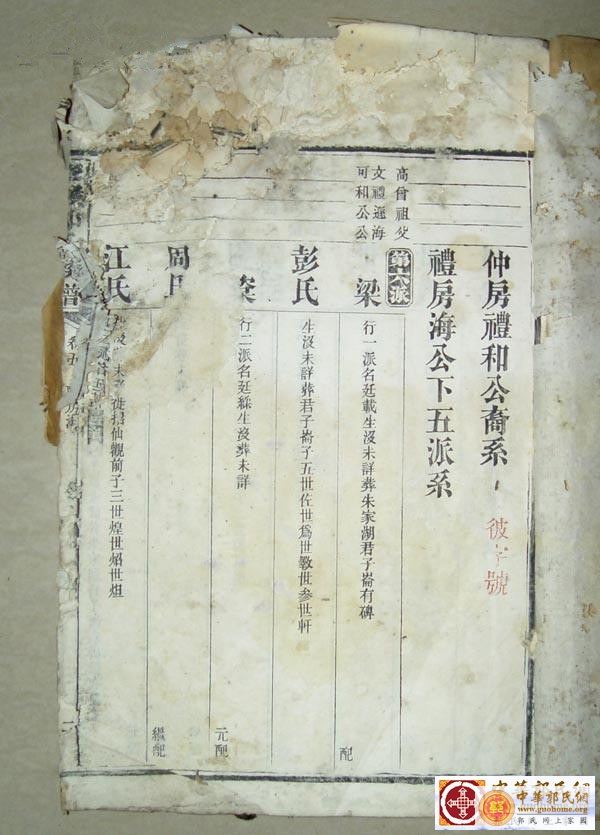 仲房禮和公裔系
彼字號
禮房海公下五派系
高曾祖父
文禮遜海
可和公公
第六派
梁
行一派名廷載生沒未詳葬朱家湖君子崙有碑
配
彭氏
生沒未詳葬君子崙子五世佐世爲世敎世參世軒
行二派名廷綵生沒葬未詳
元配
周氏
繼配
江氏
徙招仙觀前子三世煌世焰世炟
譜
中華郭氏網
www.guohome.org
郭氏網上家園